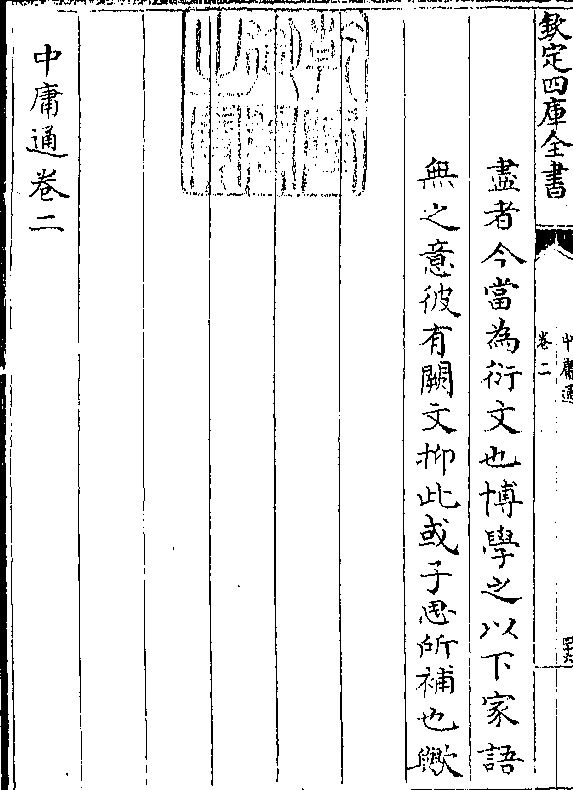 欽定四庫全書
中庸通
卷二
盡者今當為衍文也博學之以下家語
無之意彼有闕文抑此或子思所補也歟
中庸通卷二